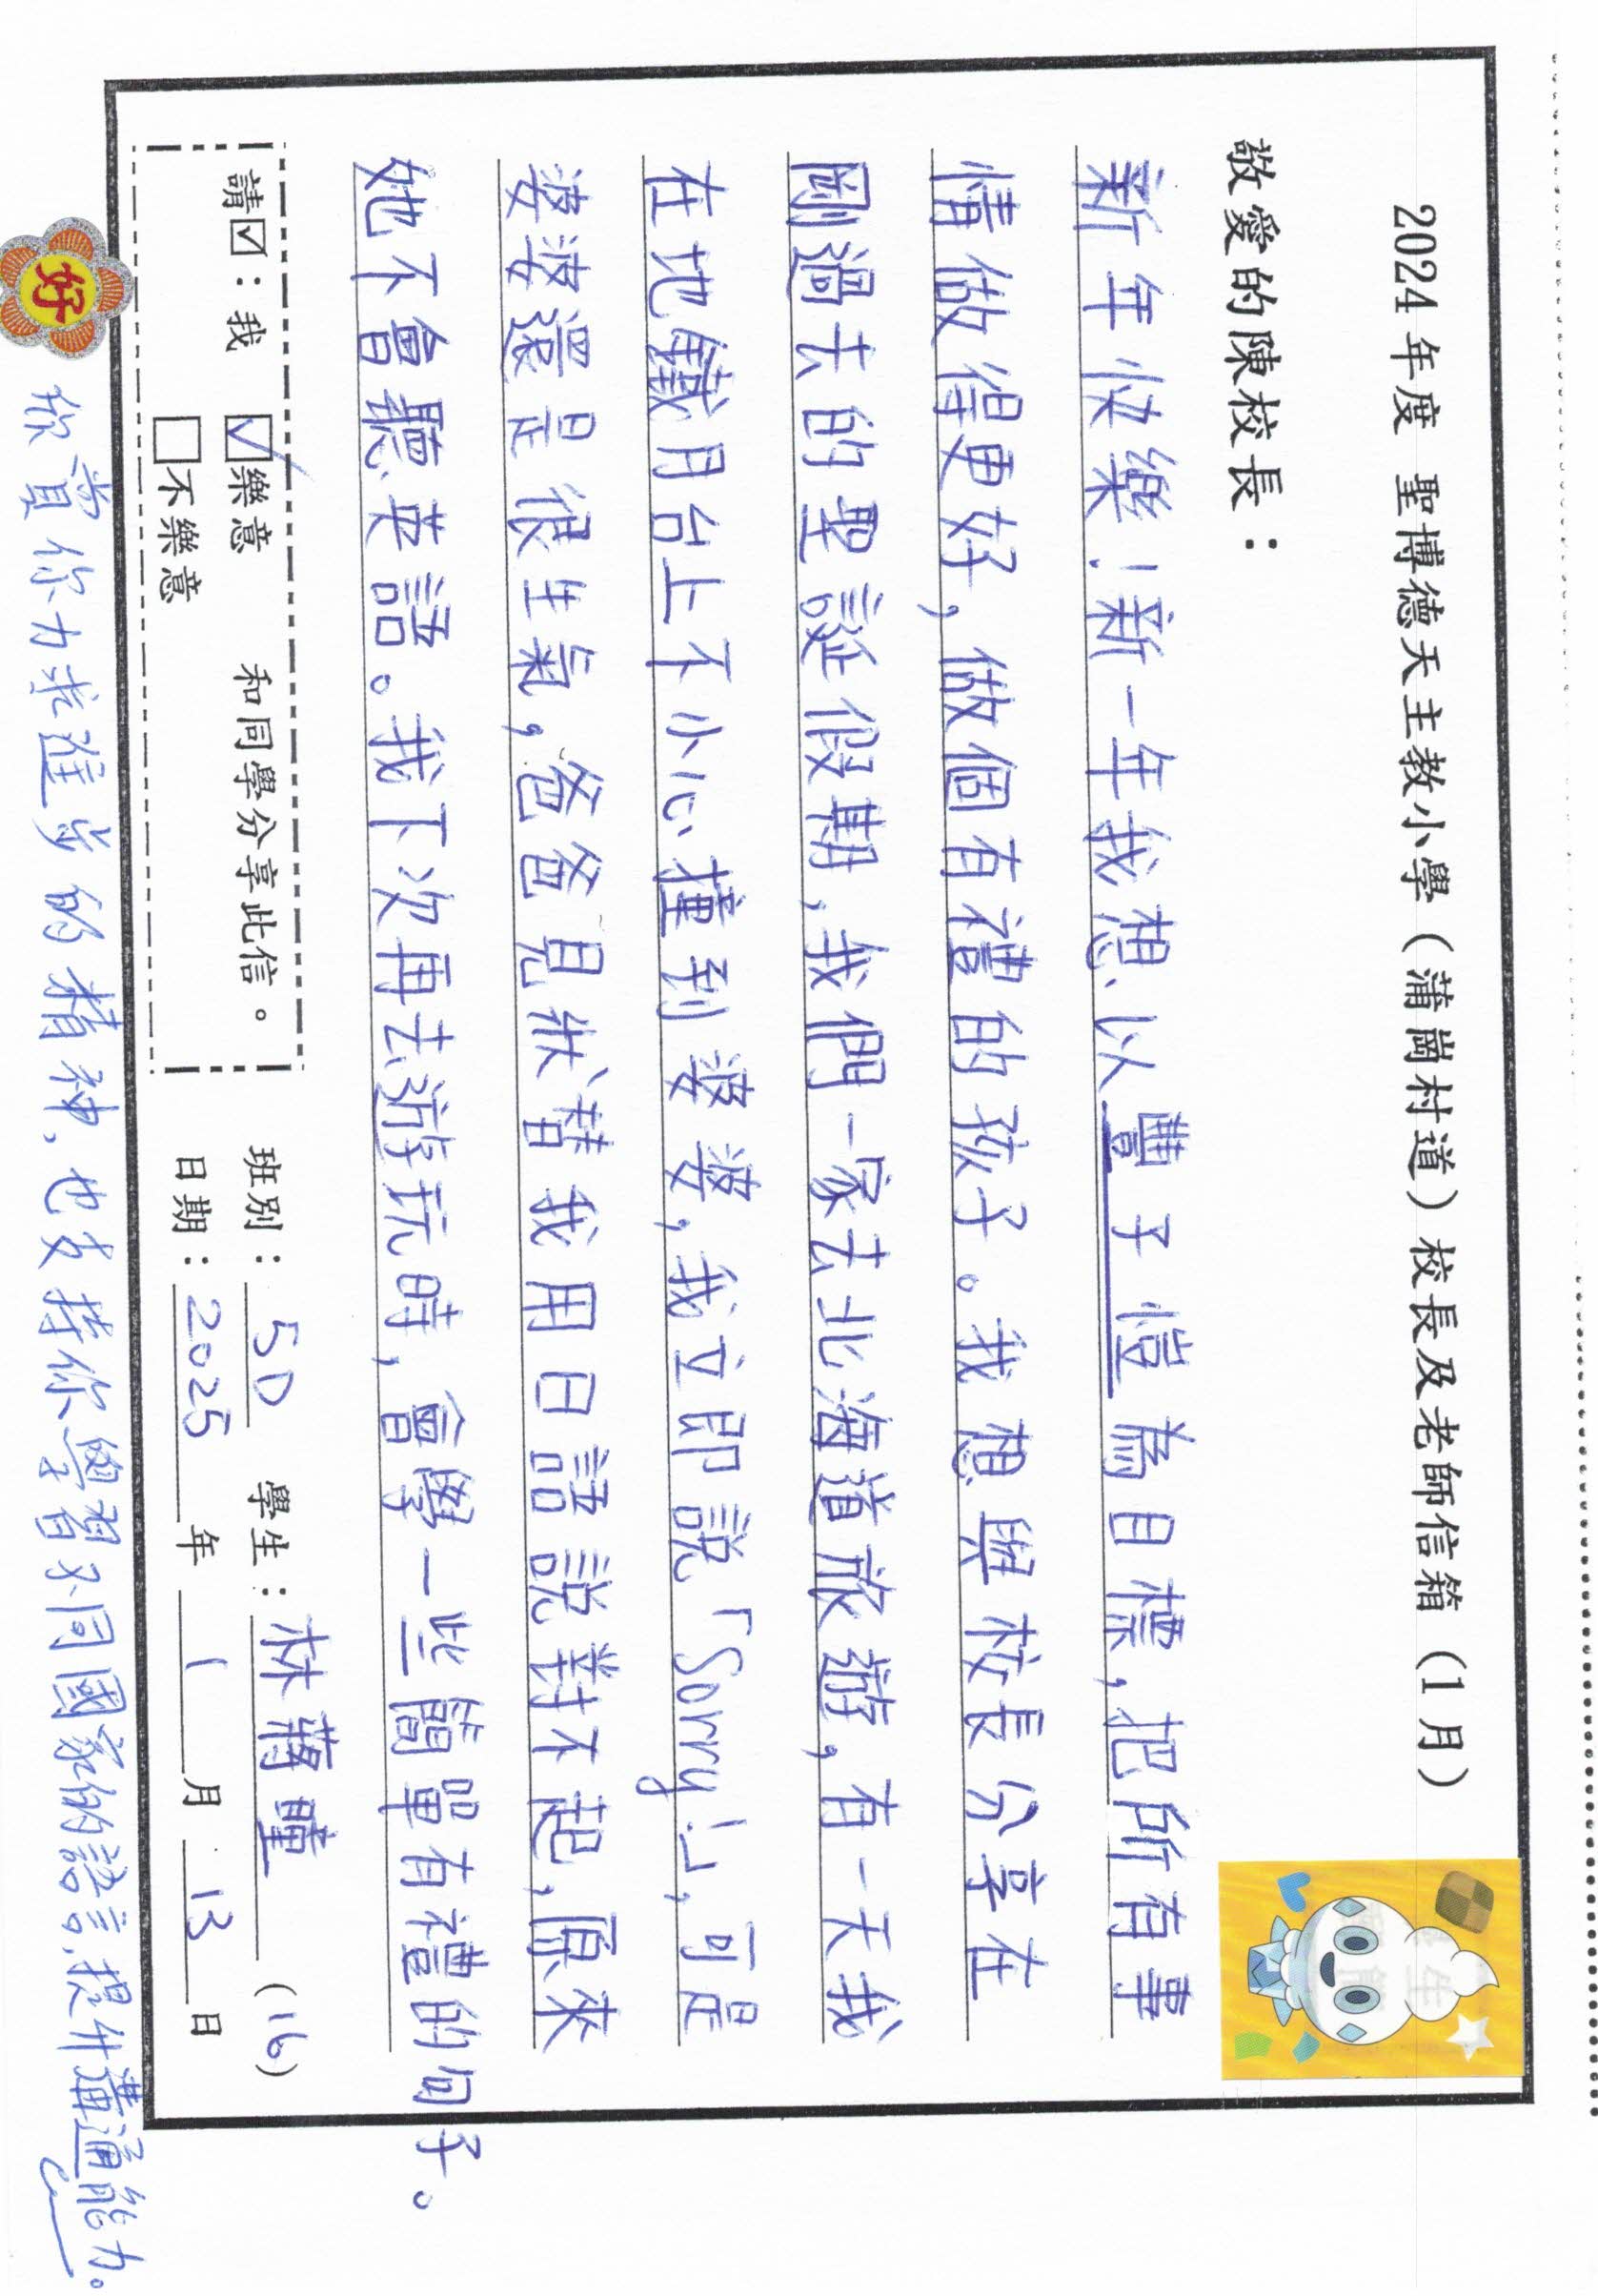 2024 年度 聖博德天主教小學（蒲崗村道）校長及老師信箱（1 月）
敬愛的陳校長：
新年快樂！新一年我想以豐子愷為目標，把所有事
情做得更好，做個有禮的孩子。我想與校長分享在
剛過去的聖誕假期，我們一家去北海道旅遊，有一天我
在地鐵月台上不小心撞到婆婆，我立即說「Sorry！」，可是
婆婆還是很生氣，爸爸見狀替我用日語說對不起，原來
她不會聽英語。我下次再去遊玩時，會學一些簡單有禮的句子。
請☑：我 ☑樂意 和同學分享此信。
□不樂意
班別：5D 學生：林蔣曈 (16)
日期：2025 年 1 月 13 日
好
欣賞你力求進步的精神，也支持你學習不同國家的語言，提升溝通能力。